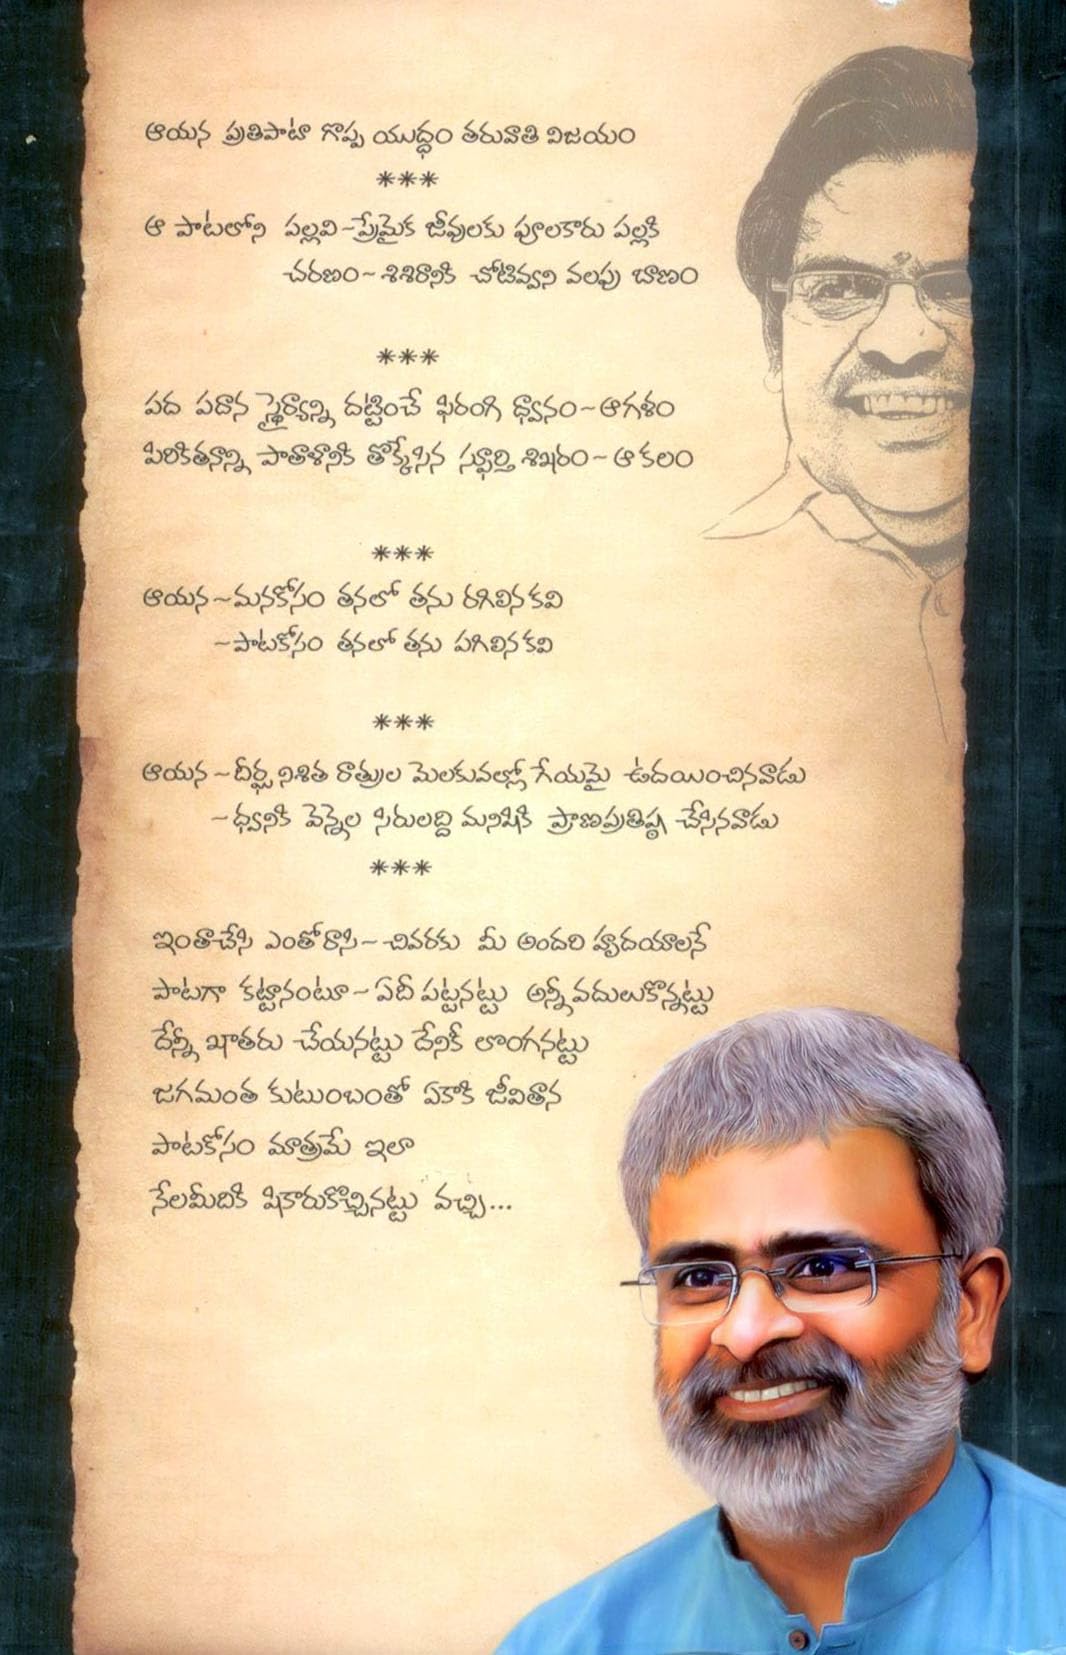 ఆయన ప్రతిపాటా గొప్ప యుద్ధం తరువాతి విజయం
***
ఆ పాటలోని పల్లవి~ప్రేమైక జీవులకు పూలకారు పల్లకి
చరణం~శిశిరానికి చోటివ్వని వలపు బాణం
***
పద పదాన స్థైర్యాన్ని దట్టించే ఫిరంగి ధ్వానం~ఆగళం
పిరికితనాన్ని పాతాళానికి తొక్కేసిన స్ఫూర్తి శిఖరం~ఆ కలం
***
ఆయన~మనకోసం తనలో తను రగిలిన కవి
~పాటకోసం తనలో తను పగిలిన కవి
***
ఆయన~దీర్ఘ నిశిత రాత్రుల మెలకువల్లో గేయమై ఉదయించినవాడు
~ధ్వనికి వెన్నెల సిరులద్ది మనిషికి ప్రాణప్రతిష్ఠ చేసినవాడు
***
ఇంతాచేసి ఎంతోరాసి~చివరకు మీ అందరి హృదయాలనే
పాటగా కట్టానంటూ~ఏదీ పట్టనట్టు అన్నీ వదులుకొన్నట్టు
దేన్నీ ఖాతరు చేయనట్టు దేనికీ లొంగనట్టు
జగమంత కుటుంబంతో ఏకాకి జీవితాన
పాటకోసం మాత్రమే ఇలా
నేలమీదికి షికారుకొచ్చినట్టు వచ్చి...